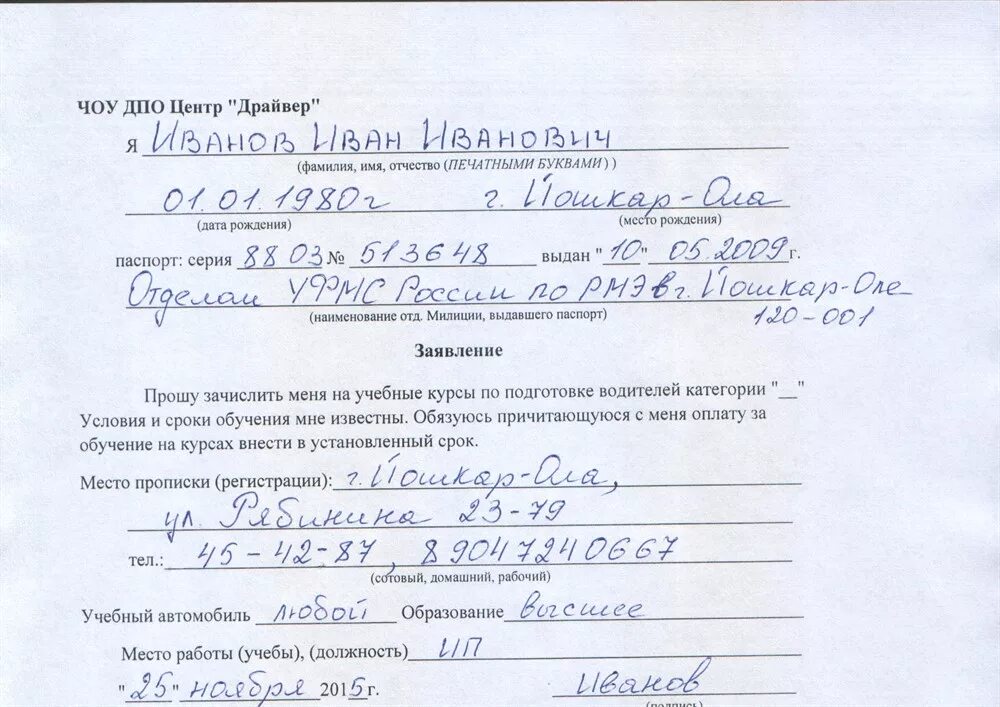 ЧОУ ДПО Центр "Драйвер"
Я ИВАНОВ ИВАН ИВАНОВИЧ
(фамилия, имя, отчество (ПЕЧАТНЫМИ БУКВАМИ) )
01.01.1980г г. Йошкар-Ола
(дата рождения) (место рождения)
паспорт: серия 88 03 № 513648 выдан "10" 05.2009г.
Отделом УФМС России по РМЭ в г. Йошкар-Оле
(наименование отд. Милиции, выдавшего паспорт) 120-001
Заявление
Прошу зачислить меня на учебные курсы по подготовке водителей категории "__"
Условия и сроки обучения мне известны. Обязуюсь причитающуюся с меня оплату за
обучение на курсах внести в установленный срок.
Место прописки (регистрации): г. Йошкар-Ола,
ул. Рябинина 23-79
тел.: 45-42-87, 89047240667
(сотовый, домашний, рабочий)
Учебный автомобиль любой Образование высшее
Место работы (учебы), (должность) ИП
"25" ноября 2015г. Иванов
(подпись)